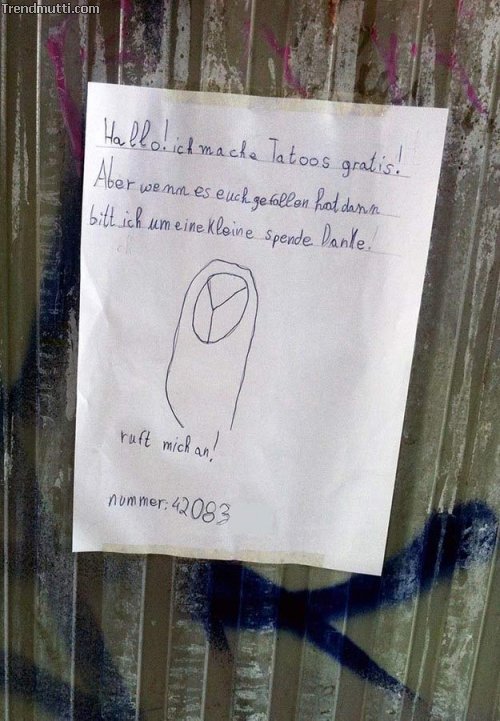 Trendmutti.com
Hallo! ich mache Tatoos gratis!
Aber wenn es euch gefallen hat dann
bitt ich um eine kleine spende Danke!
ruft mich an!
nummer: 42083